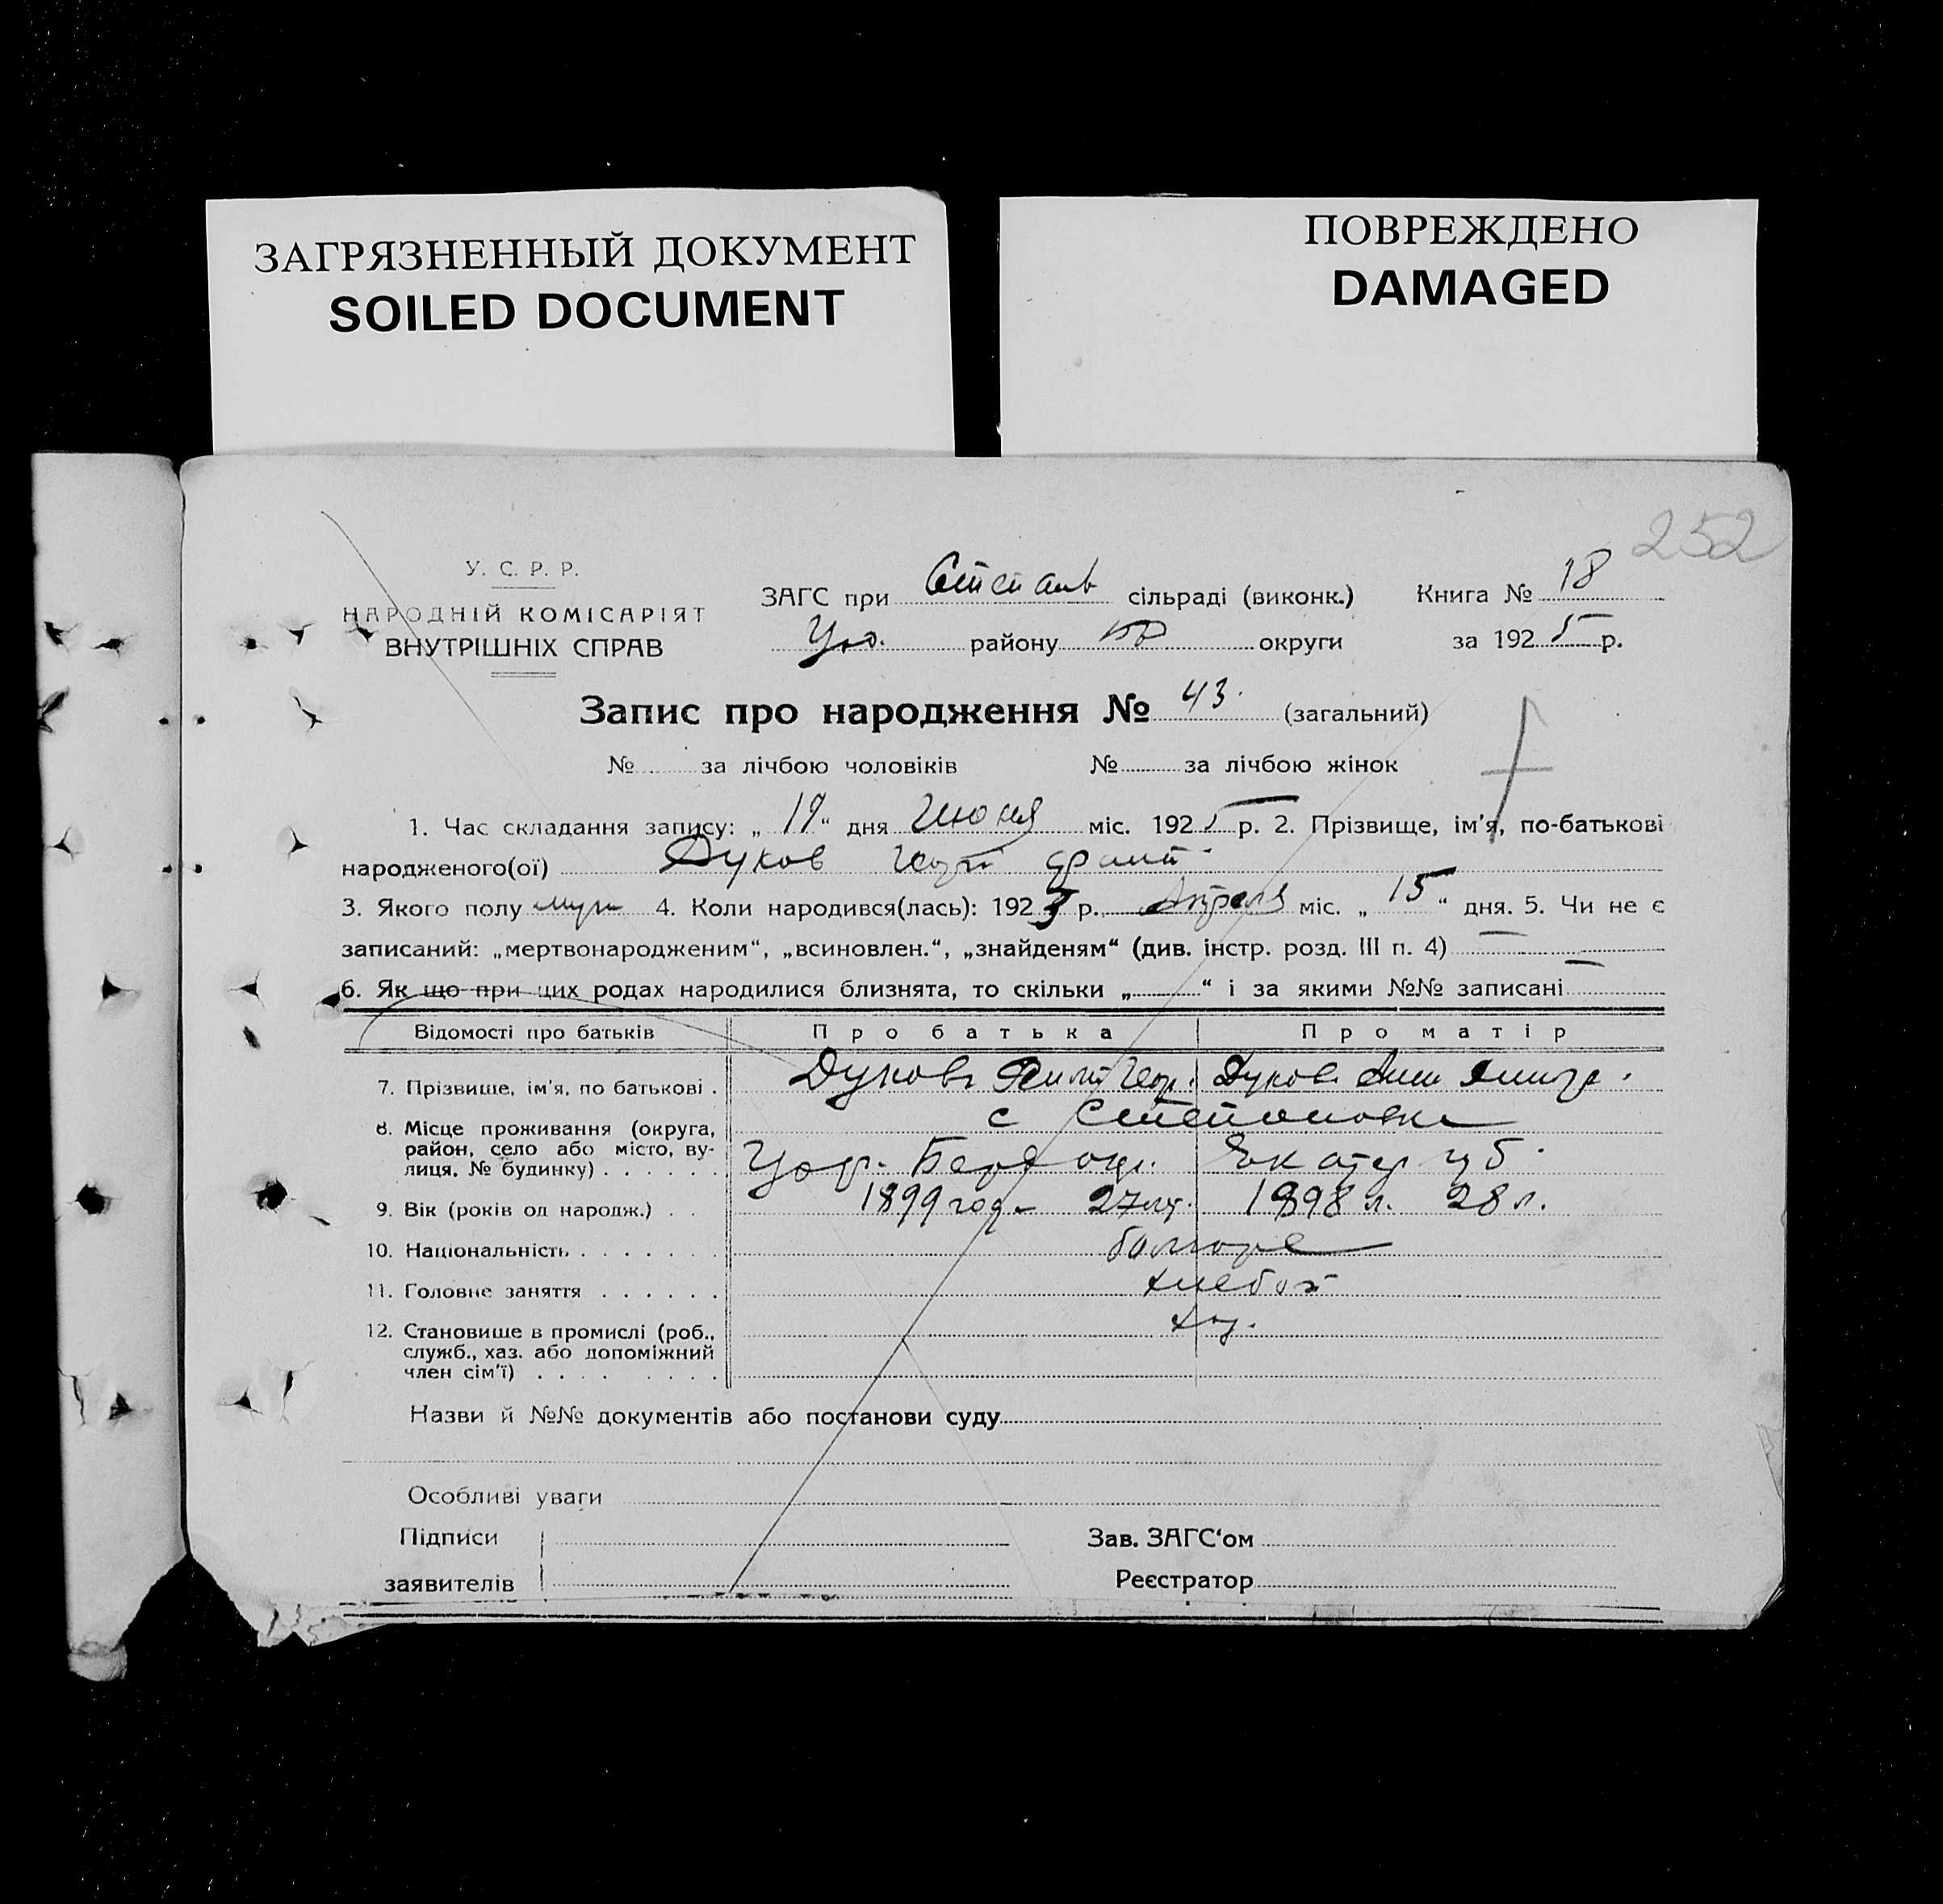 ЗАГРЯЗНЕННЫЙ ДОКУМЕНТ
SOILED DOCUMENT
ПОВРЕЖДЕНО
DAMAGED
252
У. С. Р. Р.
НАРОДНІЙ КОМІСАРІЯТ
ВНУТРІШНІХ СПРАВ
ЗАГС при Степанв сільраді (виконк.) Книга № 18
району округи за 1925 р.
Запис про народження № 43. (загальний)
№ за лічбою чоловіків № за лічбою жінок
1. Час складання запису: „ 19 “ дня Июня міс. 1925 р. 2. Прізвище, ім'я, по-батькові
народженого(ої) Дуков
3. Якого полу муж 4. Коли народився(лась): 192 р. Апреля міс. „ 15 “ дня. 5. Чи не є
записаний: „мертвонародженим“, „всиновлен.“, „знайденям“ (див. інстр. розд. III п. 4) —
6. Як що при цих родах народилися близнята, то скільки „ “ і за якими №№ записані —
Відомості про батьків Про батька Про матір
7. Прізвише, ім'я, по батькові . Дуков Геор. Дуков
8. Місце проживання (округа, район, село або місто, вулиця, № будинку) . . . . . с Степановка
Берд окр. Екатер губ.
9. Вік (років од народж.) . . 1899 год - 27 1898 л. 28 л.
10. Національність . . . . . . . болгаре
11. Головне заняття . . . . . . хлебоп
12. Становише в промислі (роб., служб., хаз. або допоміжний член сім'ї) . . . . . . . . хоз.
Назви й №№ документів або постанови суду
Особливі уваги
Підписи
заявителів
Зав. ЗАГС'ом
Реєстратор